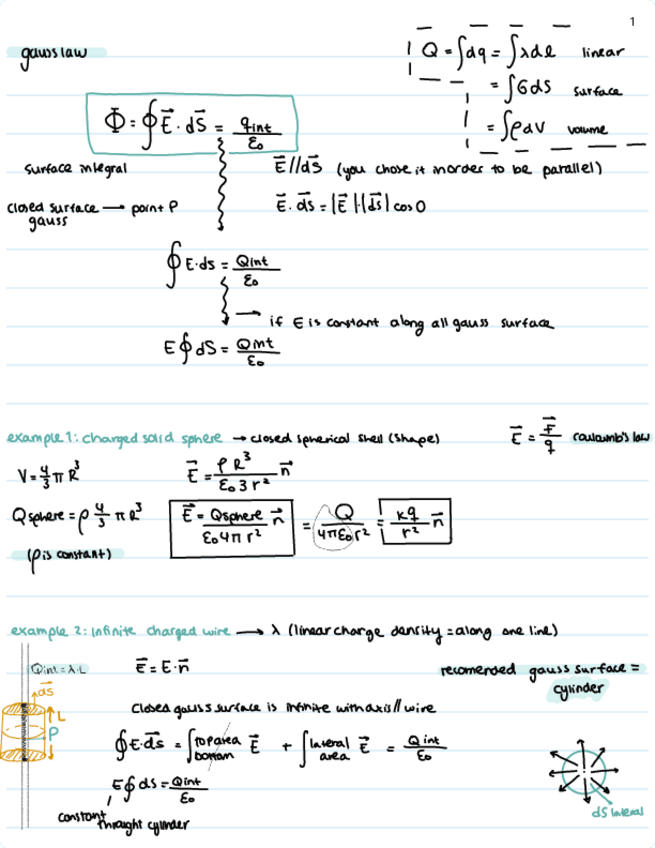 1
gauss law
Q = ∫dq = ∫λdl linear
= ∫σds surface
= ∫ρdv volume
Φ = ∮E⃗ · dS⃗ = qint/ε₀
surface integral
E⃗ // dS⃗ (you chose it inorder to be parallel)
closed surface → point P
gauss
E⃗ · ds⃗ = |E⃗|·|ds⃗| cos0
∮E·ds = Qint/ε₀
→ if E is constant along all gauss surface
E∮ds = Qint/ε₀
example 1: charged solid sphere → closed spherical shell (shape)
E⃗ = F⃗/q coulaumb's law
V = 4/3 π R³
E⃗ = ρR³/ε₀3r² n⃗
Qsphere = ρ 4/3 π R³
E⃗ = Qsphere/ε₀4πr² n⃗ = Q/4πε₀r² = kq/r² n⃗
(ρ is constant)
example 2: infinite charged wire → λ (linear charge density = along one line)
Qint = λ·L
E⃗ = E·n⃗
recomended gauss surface =
cylinder
ds⃗
L
P
closed gauss surface is infinite with axis // wire
∮E·ds⃗ = ∫top area bottom E⃗ + ∫lateral area E⃗ = Qint/ε₀
E∮ds = Qint/ε₀
constant
throught cylinder
ds lateral